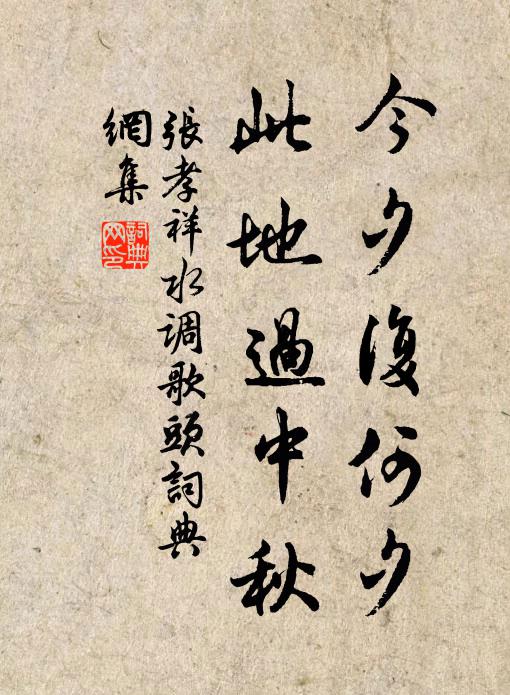 今夕復何夕
此地過中秋
張孝祥水调歌頭詞典
網集
詞典
网印